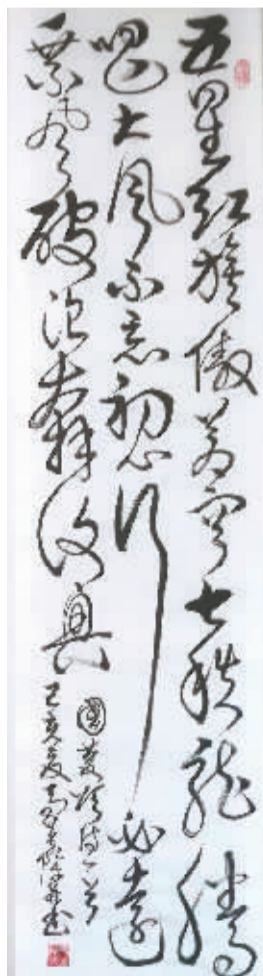 五星红旗傲苍穹七秩龙腾
唱大风不忘初心行必远
乘风破浪奔复兴
國庆颂诗一首
己亥夏